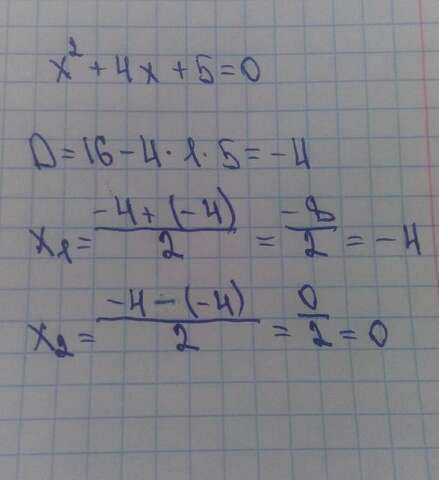 x² + 4x + 5 = 0
D = 16 - 4 · 1 · 5 = -4
x₁ = (-4 + (-4))/2 = -8/2 = -4
x₂ = (-4 - (-4))/2 = 0/2 = 0